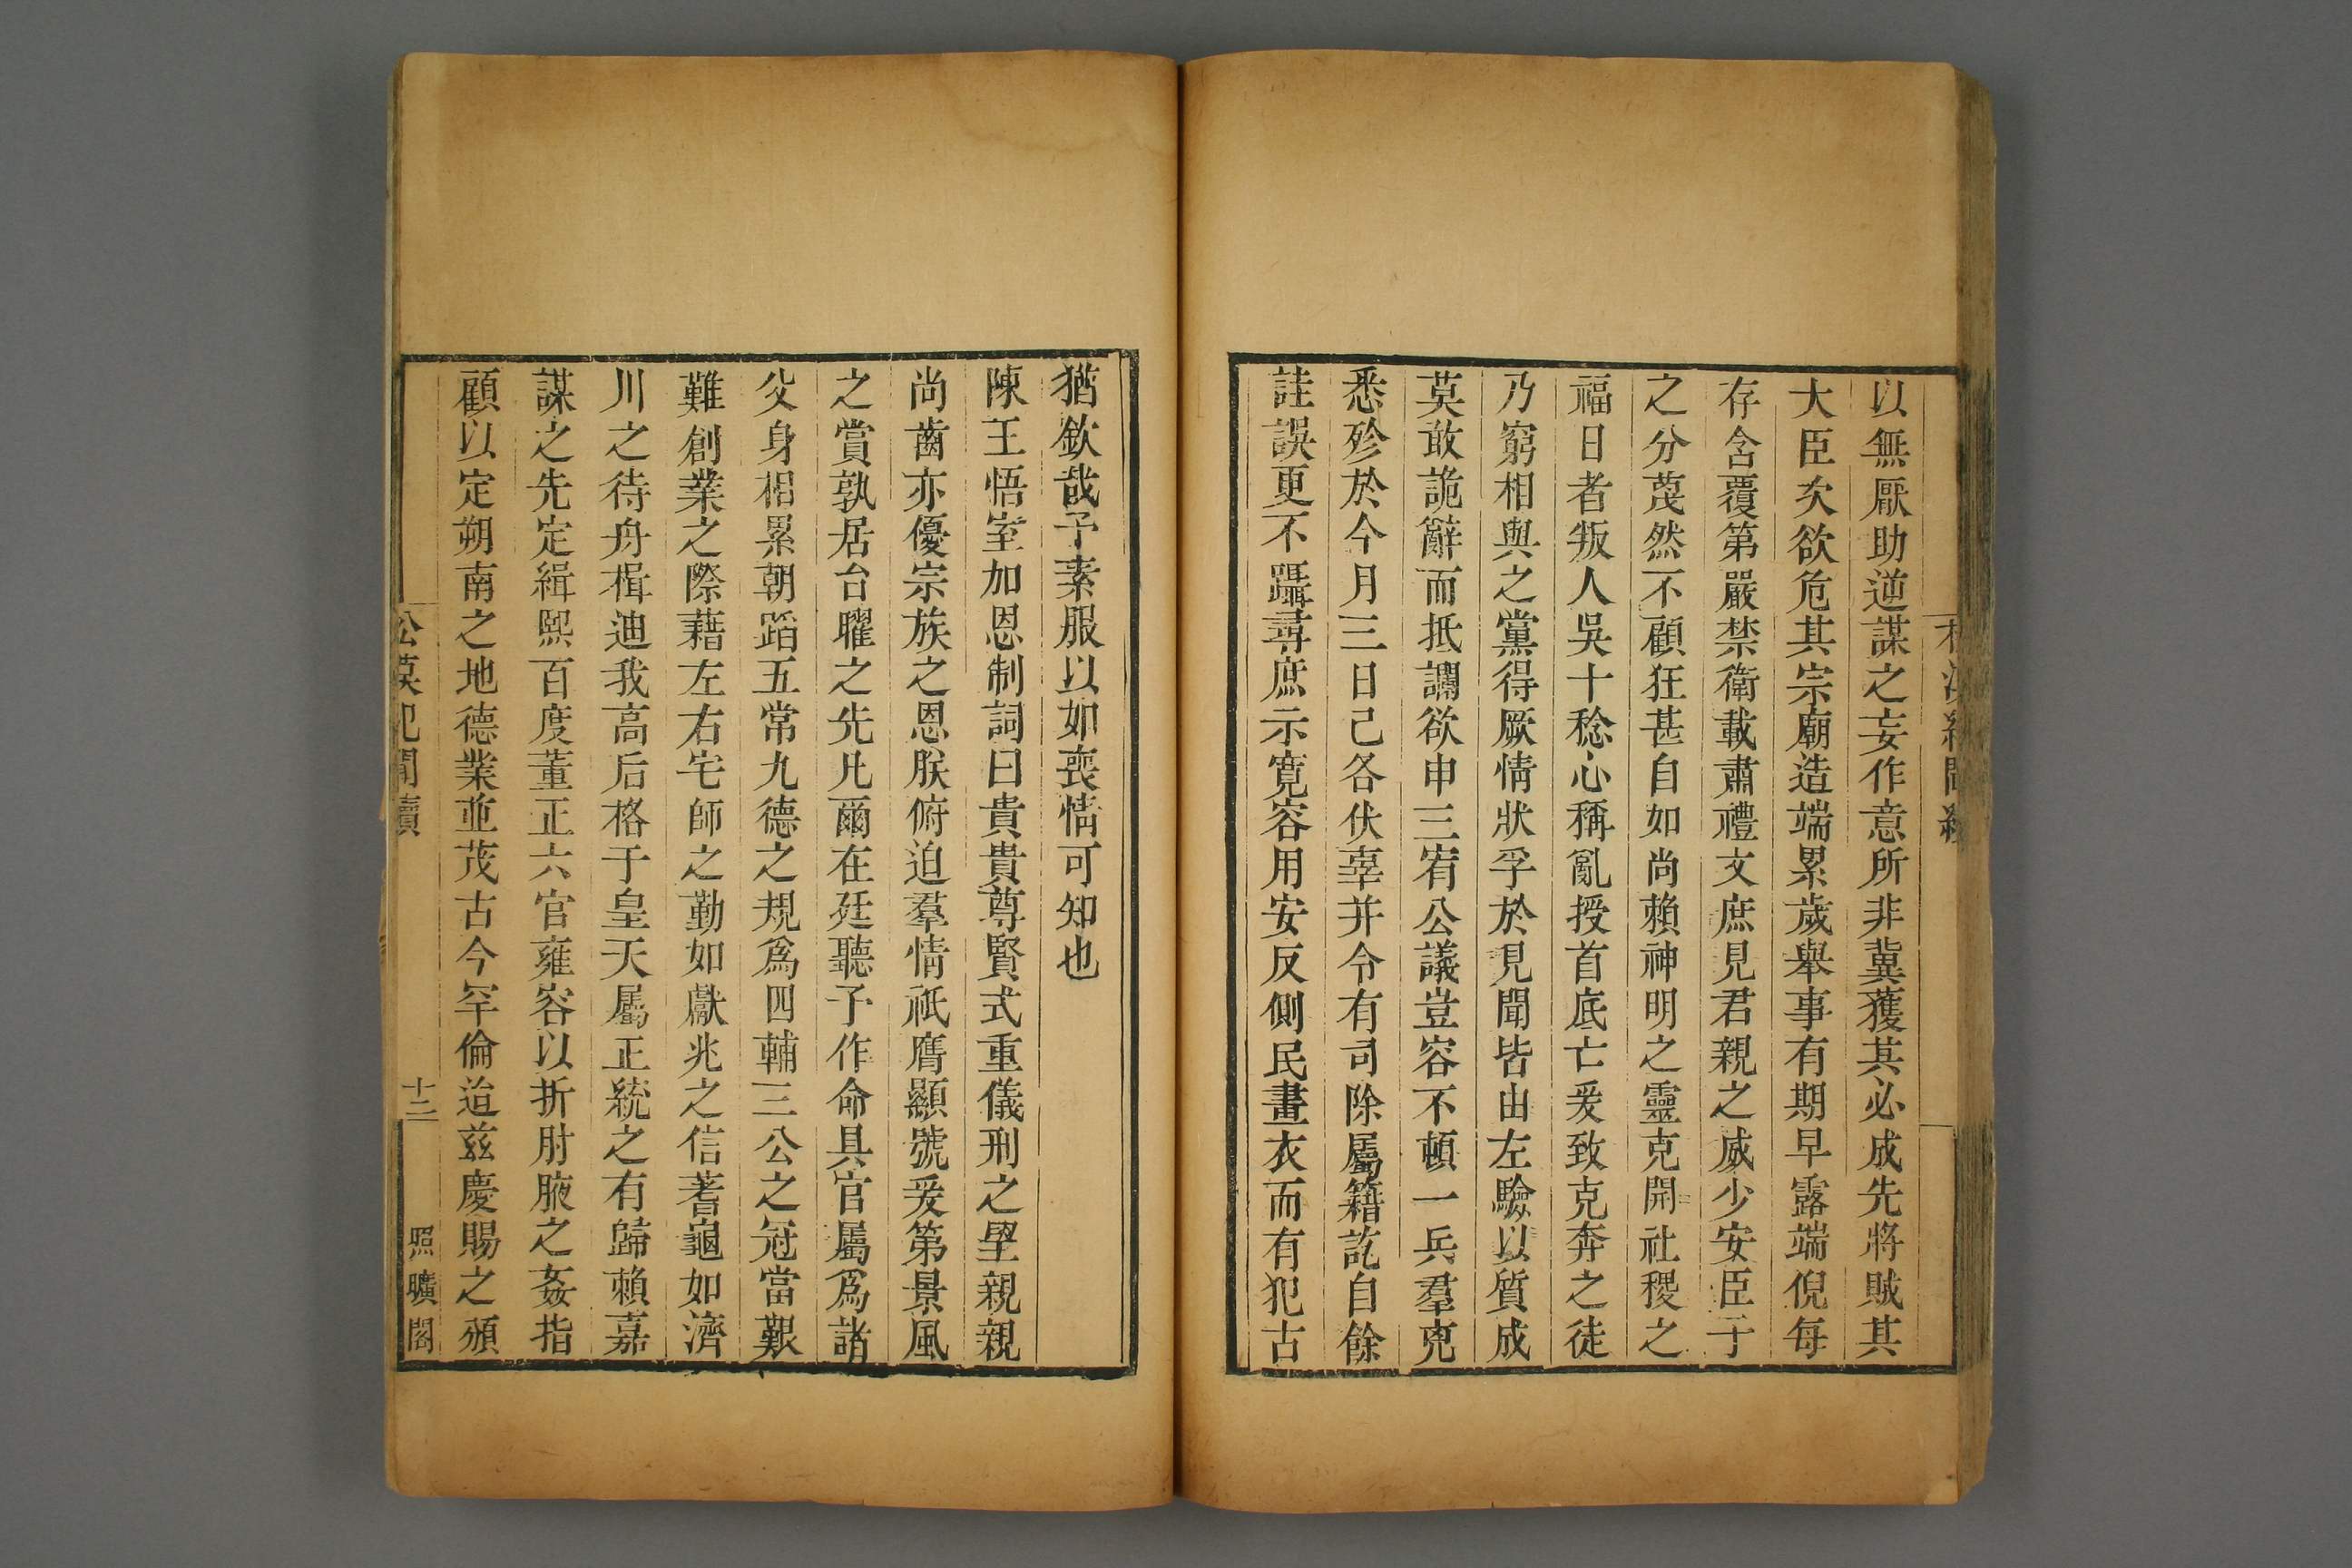 以無厭助逆謀之妄作意所非冀獲其必成先將賊其
大臣次欲危其宗廟造端累歲舉事有期早露端倪每
存含覆第嚴禁衛載肅禮文庶見君親之威少安臣子
之分蔑然不顧狂甚自如尚賴神明之靈克開社稷之
福日者叛人吳十稔心稱亂授首底亡爰致克奔之徒
乃窮相與之黨得厥情狀孚於見聞皆由左驗以質成
莫敢詭辭而抵讕欲申三宥公議豈容不頓一兵羣兇
悉殄於今月三日己各伏辜并令有司除屬籍訖自餘
詿誤更不躡尋庶示寬容用安反側民畫衣而有犯古
猶欽哉予素服以如喪情可知也
陳王悟室加恩制詞曰貴貴尊賢式重儀刑之望親親
尚齒亦優宗族之恩朕俯迫羣情祇膺顯號爰第景風
之賞孰居台曜之先凡爾在廷聽予作命具官屬爲諸
父身相累朝蹈五常九德之規爲四輔三公之冠當艱
難創業之際藉左右宅師之勤如獻兆之信蓍龜如濟
川之待舟楫迪我高后格于皇天屬正統之有歸賴嘉
謀之先定緝熙百度董正六官雍容以折肘腋之姦指
顧以定朔南之地德業並茂古今罕倫迨茲慶賜之頒
十二
照曠閣